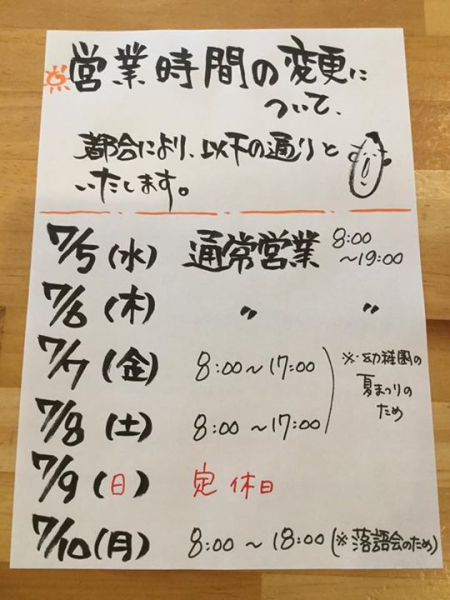 営業時間の変更に
ついて、
都合により、以下の通りと
いたします。
7/5(水) 通常営業 8:00
～19:00
7/6(木) 〃 〃
7/7(金) 8:00～17:00 ※幼稚園の
夏まつりの
ため
7/8(土) 8:00～17:00
7/9(日) 定休日
7/10(月) 8:00～18:00(※落語会のため)